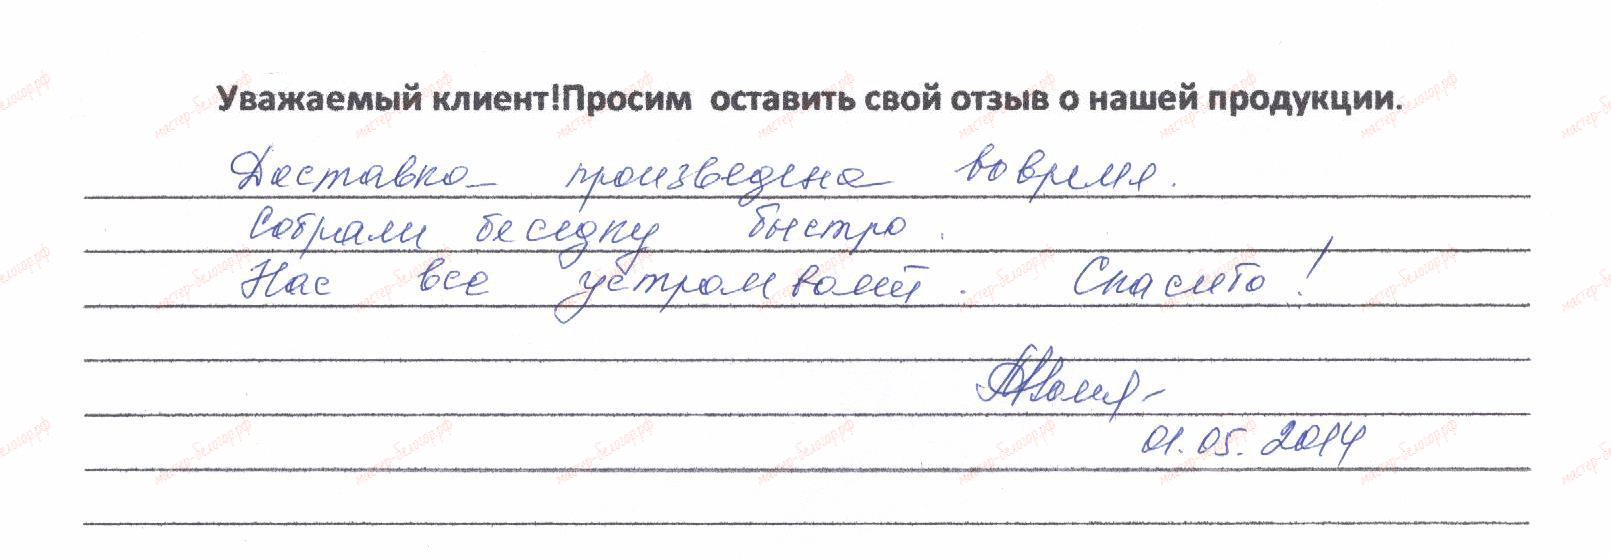 Уважаемый клиент!Просим оставить свой отзыв о нашей продукции.
Доставка произведена вовремя.
Собрали беседку быстро.
Нас все устраивает. Спасибо!
01.05.2014